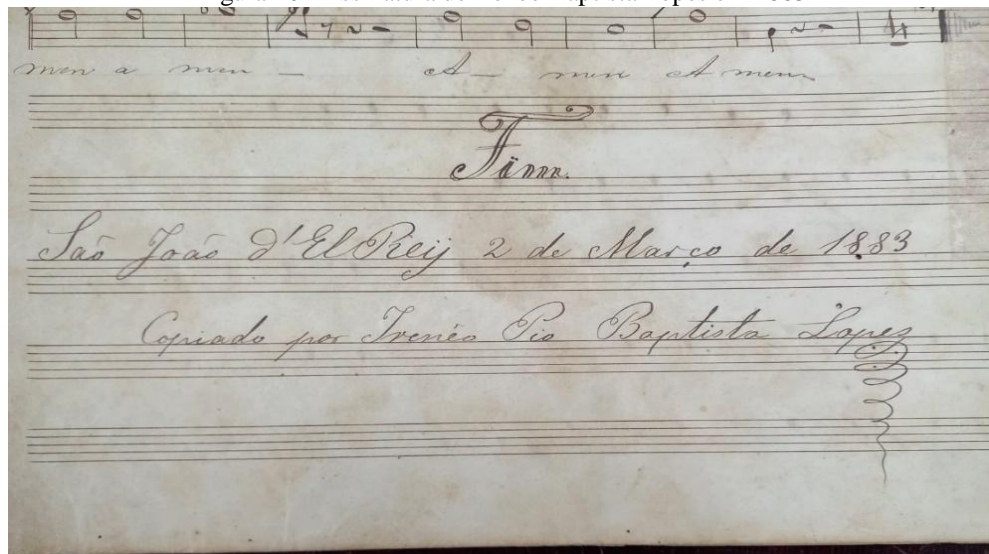 men a men — A — men A men
Fim.
São João d'El Reÿ 2 de Março de 1883
Copiado por Irenêo Pio Baptista Lopez